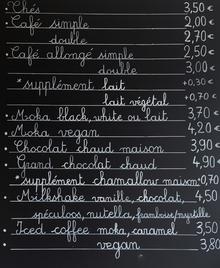 Thés 3,50 €
• Café simple 2,00 €
double 2,70 €
• Café allongé simple 2,50 €
double 3,00 €
* supplément lait +0,30 €
lait végétal +0,70 €
• Moka black, white ou halt 3,70
• Moka vegan 4,20
• Chocolat chaud maison 3,90 €
• Grand chocolat chaud 4,90 €
* supplément chamallow maison +0,70
• Milkshake vanille, chocolat, 4,50
spéculoos, nutella, framboise/myrtille
• Iced coffee moka, caramel 3,50
vegan 3,80